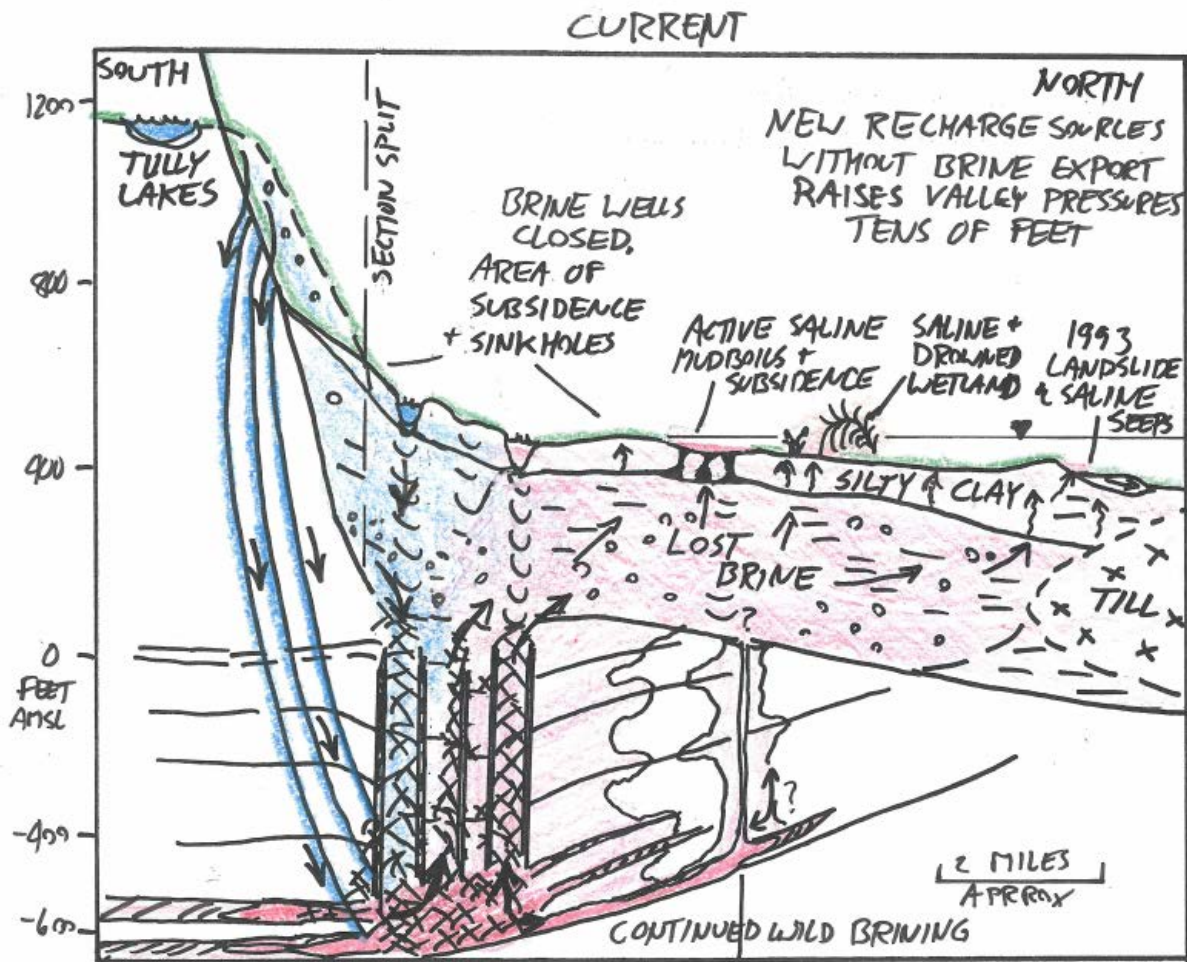 CURRENT
SOUTH
NORTH
1200
TULLY
LAKES
SECTION SPLIT
NEW RECHARGE SOURCES
WITHOUT BRINE EXPORT
RAISES VALLEY PRESSURES
TENS OF FEET
BRINE WELLS
CLOSED,
AREA OF
SUBSIDENCE
+ SINKHOLES
800
ACTIVE SALINE
MUDBOILS +
SUBSIDENCE
SALINE +
DROWNED
WETLAND
1993
LANDSLIDE
& SALINE
SEEPS
400
SILTY CLAY
LOST
BRINE
TILL
?
0
FEET
AMSL
?
-400
2 MILES
APPROX
-600
CONTINUED WILD BRINING